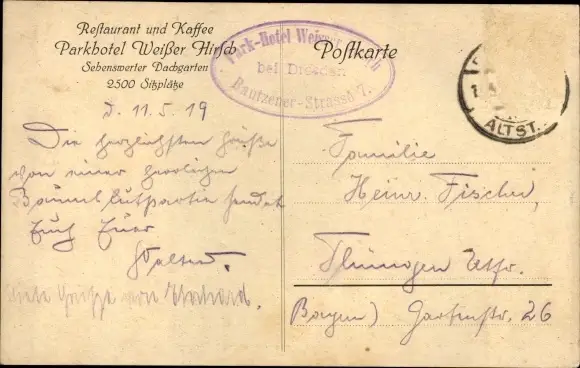 Restaurant und Kaffee
Parkhotel Weißer Hirsch
Sehenswerter Dachgarten
2500 Sitzplätze
Park-Hotel Weisser Hirsch
bei Dresden
Bautzener-Strasse 7.
Postkarte
ALTST.
D. 11.5.19
Die herzlichsten Grüße
von einer herrlichen
Bäumelblutpartie sendet
Euch Euer
Walter.
Viele Grüße von Eberhard.
Familie
Heinr. Fischer,
Bayern) Gartenstr. 26